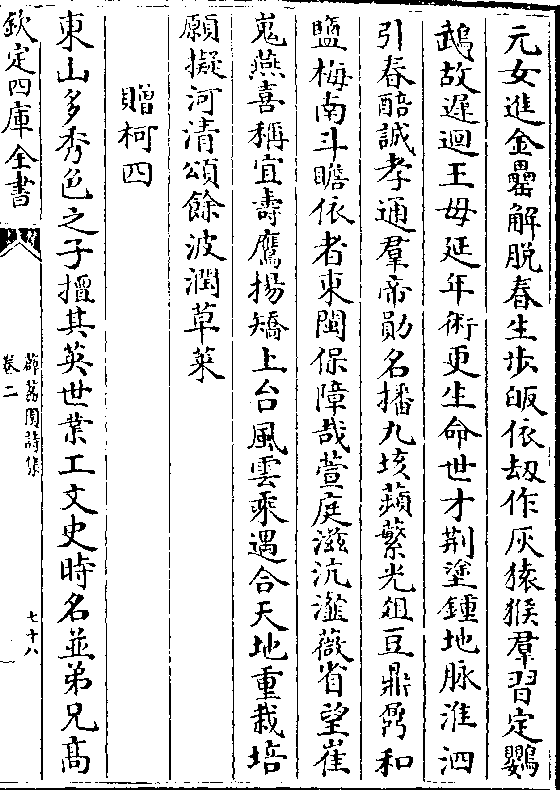 元女進金罍解脱春生步皈依刼作灰猿猴羣習定鸚
鵡故遲迴王母延年術更生命世才荆塗鍾地脉淮泗
引春醅誠孝通羣帝勛名播九垓蘋蘩光俎豆鼎鼐和
鹽梅南斗瞻依者東閩保障哉萱庭滋沆瀣薇省望崔
嵬燕喜稱宜壽鷹揚矯上台風雲乘遇合天地重栽培
願擬河清頌餘波潤草萊
贈柯四
東山多秀色之子擅其英世業工文史時名並弟兄髙
欽定四庫全書
薜荔園詩集
卷二
七十八